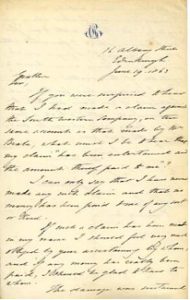 16 Albany Street
Edinburgh
June 19. 1863
Gentlemen
If you were surprised to hear
that I had made a claim against
the South Western Company, on the
same account as that made by Mr
Beale, what must I be to hear that
my claim "has been entertained
the amount though paid
I can only say that I have never
made any such claim and that no
money has been paid me of any sort
or kind.
If such a claim has been made
in my name I should feel very much
obliged by your ascertaining by whom
and if any money has really been
paid, I should be glad to hear to
whom.
The damage was